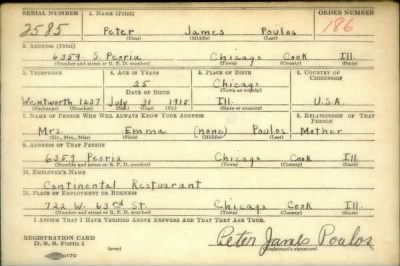 SERIAL NUMBER 1. NAME (Print) ORDER NUMBER
2585 Peter James Poulos 186
(First) (Middle) (Last)
2. ADDRESS (Print)
6359 S. Peoria Chicago Cook Ill.
(Number and street or R. F. D. number) (Town) (County) (State)
3. TELEPHONE 4. AGE IN YEARS 5. PLACE OF BIRTH 6. COUNTRY OF CITIZENSHIP
25 Chicago
DATE OF BIRTH (Town or county)
Wentworth 1237 July 31 1915 Ill. U.S.A.
(Exchange) (Number) (Mo.) (Day) (Yr.) (State or country)
7. NAME OF PERSON WHO WILL ALWAYS KNOW YOUR ADDRESS 8. RELATIONSHIP OF THAT PERSON
Mrs. Emma (none) Poulos Mother
(Mr., Mrs., Miss) (First) (Middle) (Last)
9. ADDRESS OF THAT PERSON
6359 Peoria Chicago Cook Ill.
(Number and street or R. F. D. number) (Town) (County) (State)
10. EMPLOYER'S NAME
Continental Restuarant
11. PLACE OF EMPLOYMENT OR BUSINESS
722 W. 63rd St. Chicago Cook Ill.
(Number and street or R. F. D. number) (Town) (County) (State)
I AFFIRM THAT I HAVE VERIFIED ABOVE ANSWERS AND THAT THEY ARE TRUE.
REGISTRATION CARD
D. S. S. Form 1 Peter James Poulos
(Registrant's signature)